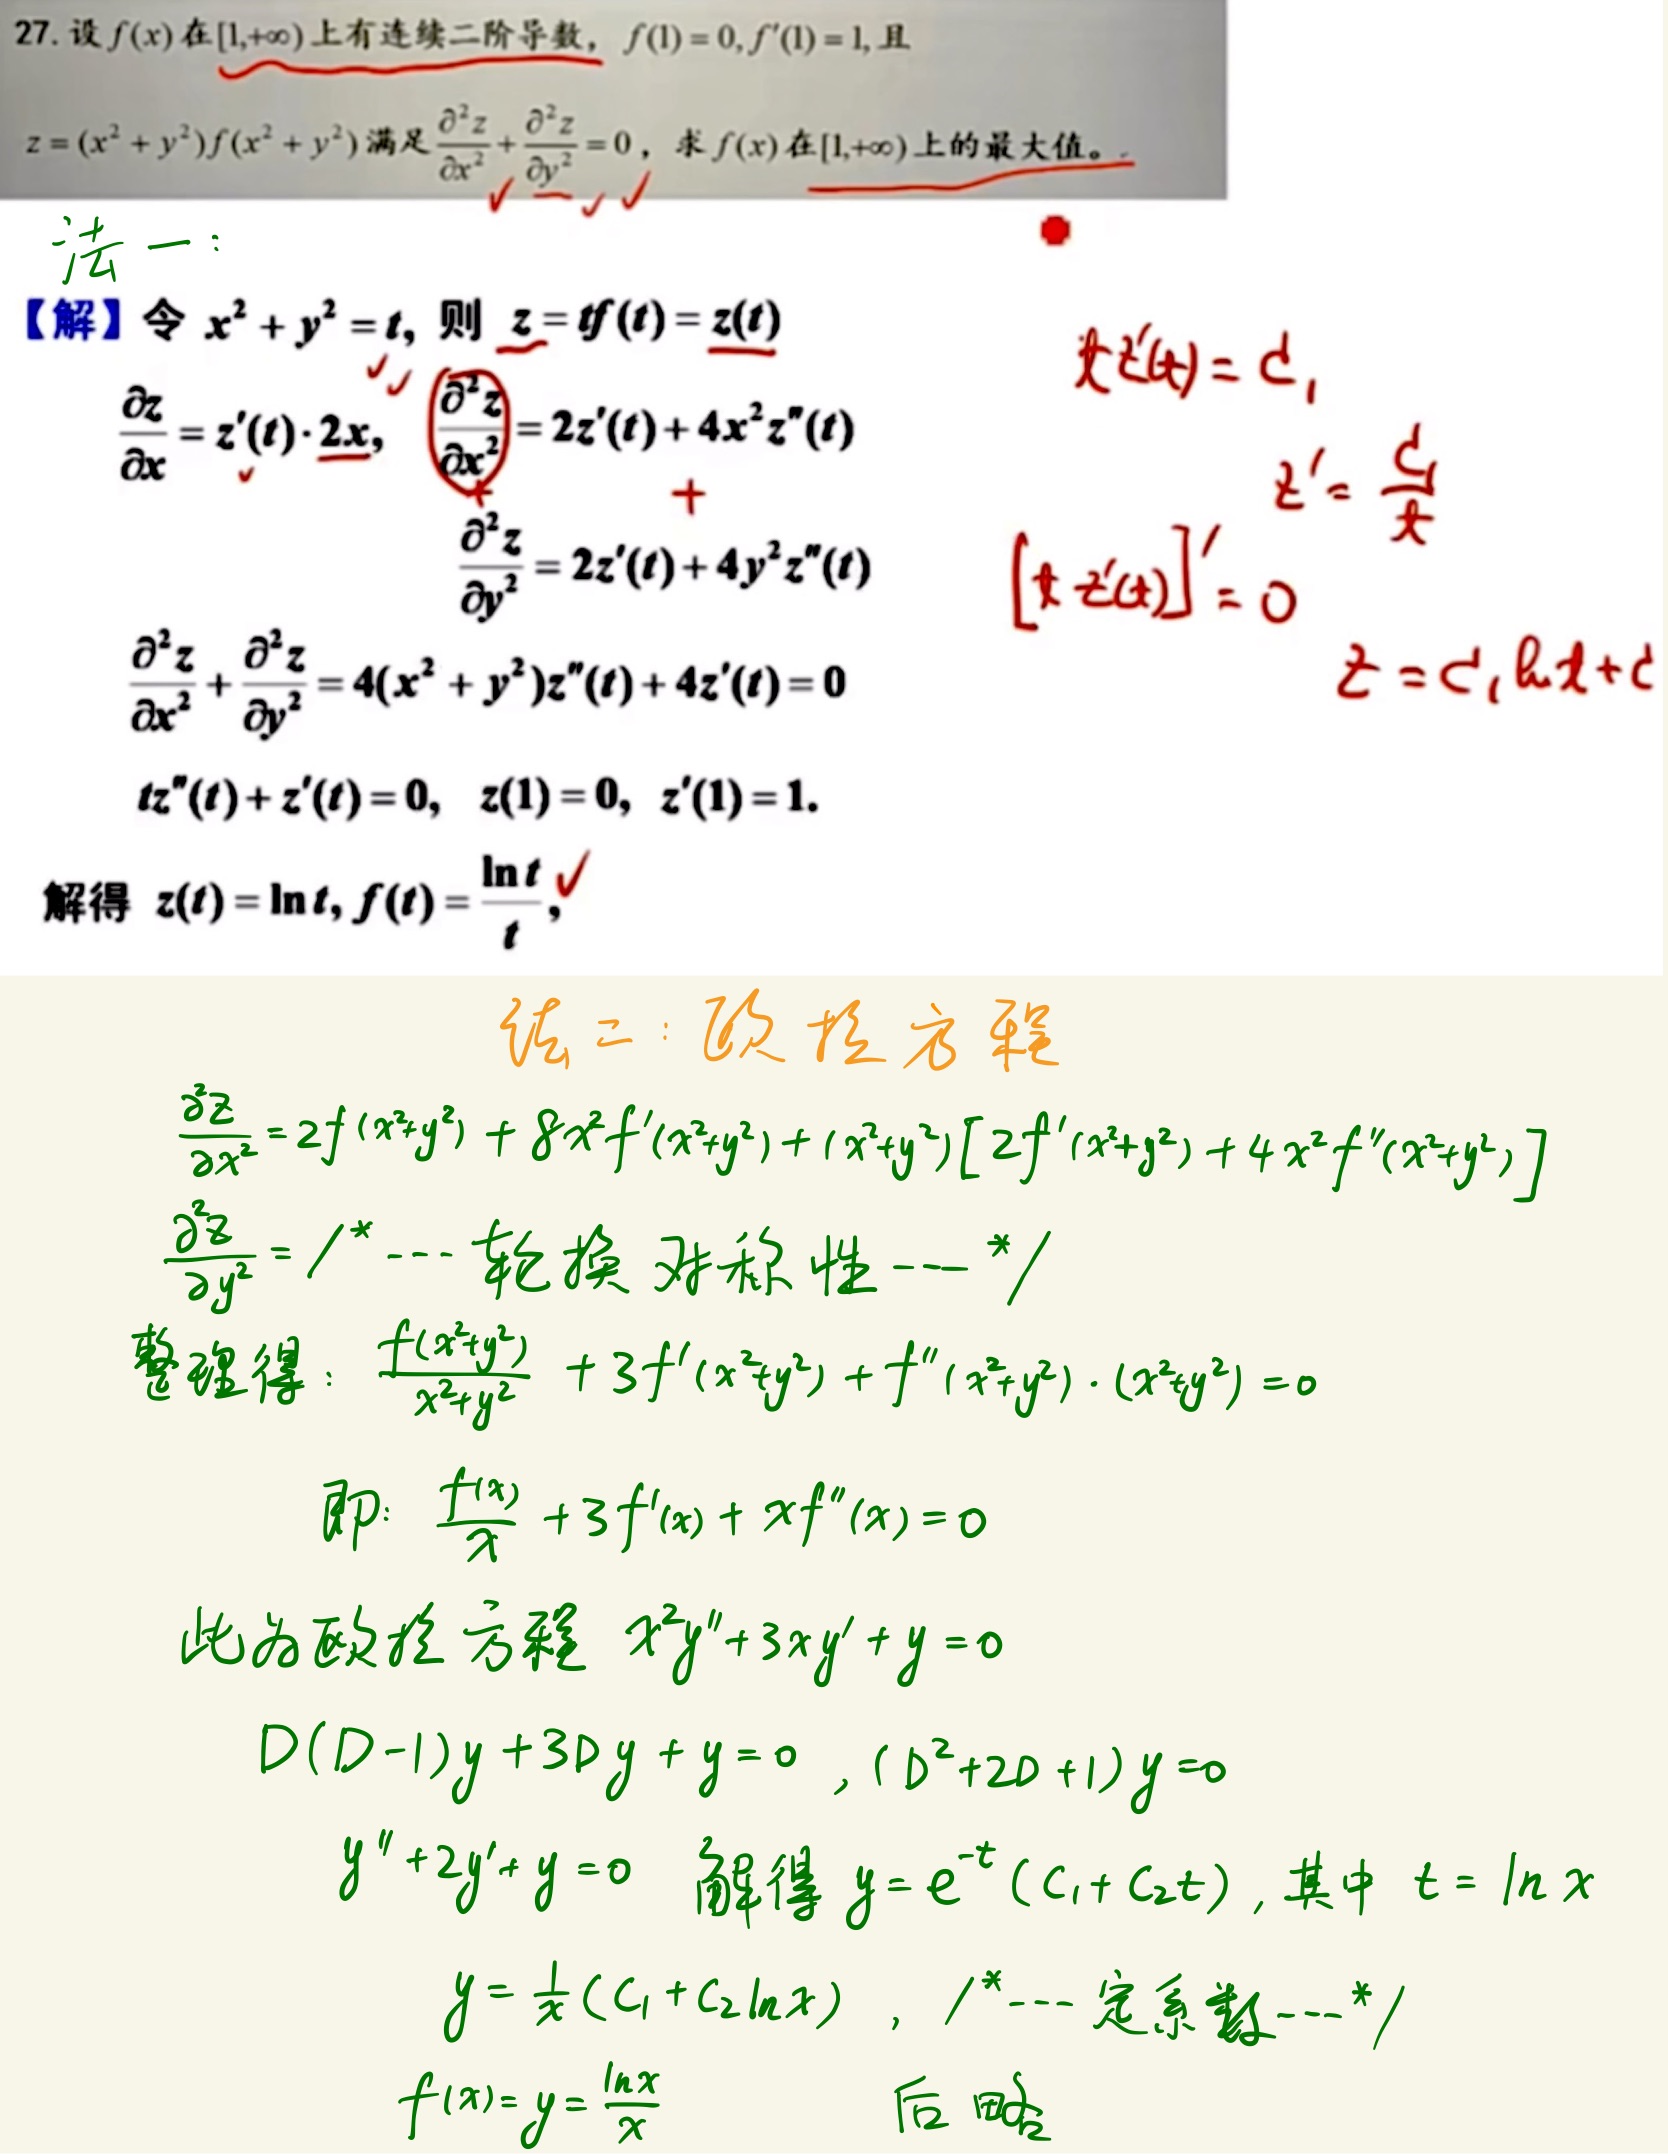 27. 设 f(x) 在[1,+∞) 上有连续二阶导数, f(1) = 0, f′(1) = 1, 且
z = (x² + y²)f(x² + y²) 满足 ∂²z/∂x² + ∂²z/∂y² = 0, 求 f(x) 在[1,+∞) 上的最大值。
法一:
【解】令 x² + y² = t, 则 z = tf(t) = z(t)
tz′(t) = C₁
∂z/∂x = z′(t)·2x, ∂²z/∂x² = 2z′(t) + 4x²z″(t)
z′ = C₁/t
+ +
∂²z/∂y² = 2z′(t) + 4y²z″(t)
[t z′(t)]′ = 0
∂²z/∂x² + ∂²z/∂y² = 4(x² + y²)z″(t) + 4z′(t) = 0
z = C₁ ln t + C
tz″(t) + z′(t) = 0, z(1) = 0, z′(1) = 1.
解得 z(t) = ln t, f(t) = ln t/t,
法二:欧拉方程
∂²z/∂x² = 2f(x²+y²) + 8x²f′(x²+y²) + (x²+y²)[2f′(x²+y²) + 4x²f″(x²+y²)]
∂²z/∂y² = /*---轮换对称性---*/
整理得: f(x²+y²)/(x²+y²) + 3f′(x²+y²) + f″(x²+y²)·(x²+y²) = 0
即: f(x)/x + 3f′(x) + xf″(x) = 0
此为欧拉方程 x²y″+3xy′+y=0
D(D-1)y+3Dy+y=0 , (D²+2D+1)y=0
y″+2y′+y=0 解得 y=e⁻ᵗ(C₁+C₂t), 其中 t = ln x
y = 1/x (C₁+C₂lnx) , /*---定系数---*/
f(x)=y=lnx/x 后略